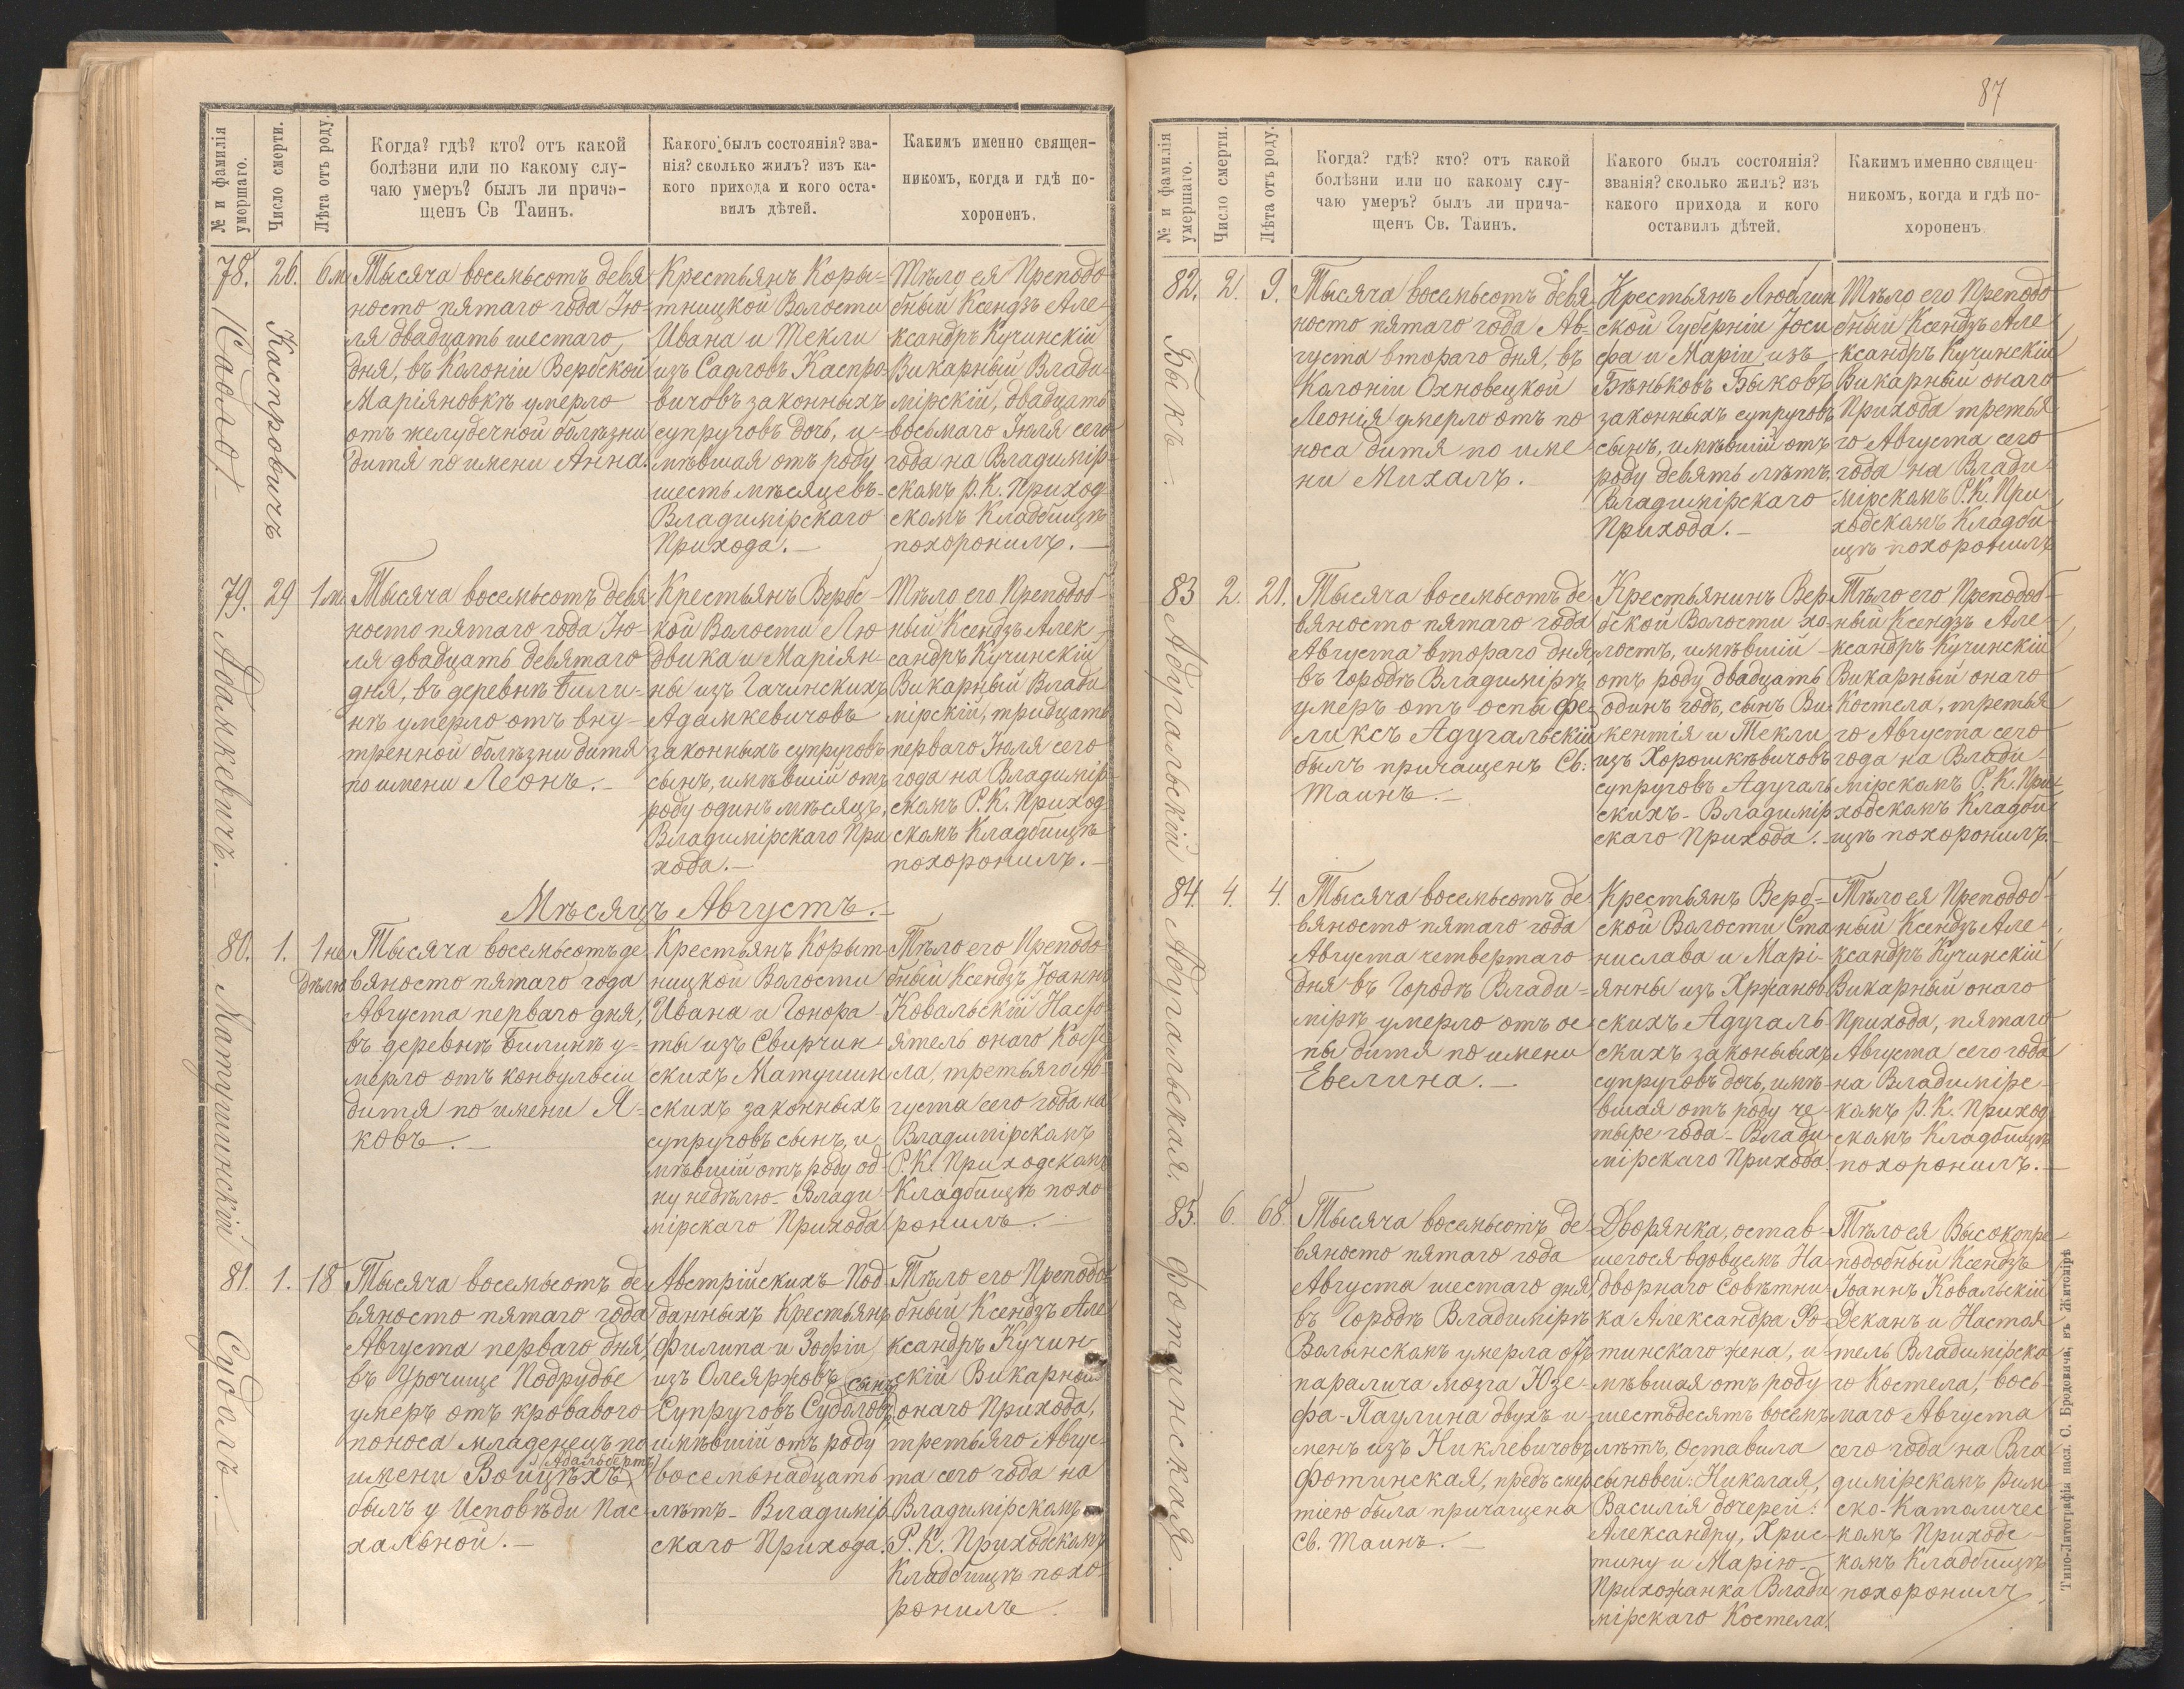 № и фамилія умершаго.
Число смерти.
Лѣта отъ роду.
Когда? гдѣ? кто? отъ какой
болѣзни или по какому слу-
чаю умеръ? былъ ли прича-
щенъ Св Таинъ.
Какого былъ состоянія? зва-
нія? сколько жилъ? изъ ка-
кого прихода и кого оста-
вилъ дѣтей.
Какимъ именно священ-
никомъ, когда и гдѣ по-
хороненъ.
78.
Каспровичъ
26.
6 м.
Тысяча восемьсотъ девя
носто пятаго года Ію-
ля двадцать шестаго
дня, въ Колоніи Вербской
Маріяновкѣ умерло
отъ желудечной болѣзни
дитя по имени Анна.
Крестьянъ Коры-
тницкой Волости
Ивана и Текли
изъ Садловъ Каспро-
вичовъ законныхъ
супруговъ дочь, и-
мѣвшая отъ роду
шесть мѣсяцевъ-
Владимірскаго
Прихода.-
Тѣло ея Преподо-
бный Ксендзъ Але-
ксандръ Кучинскій
Викарный Влади-
мірскій, двадцать
восьмаго Іюля сего
года на Владимір-
скомъ Р. К. Приход-
скомъ Кладбищѣ
похоронилъ.-
79.
Адамкевичъ.-
29
1 м.
Тысяча восемьсотъ девя
носто пятаго года Ію-
ля двадцать девятаго
дня, въ деревнѣ Били-
нѣ умерло отъ вну-
тренной болѣзни дитя
по имени Леонъ.-
Крестьянъ Вербс-
кой Волости Лю
двика и Маріян-
ны изъ Гачинскихъ
Адамкевичовъ
законныхъ супруговъ
сынъ, имѣвшій отъ
роду одинъ мѣсяцъ,
Владимірскаго При
хода.-
Тѣло его Преподоб-
ный Ксендзъ Алек-
сандръ Кучинскій
Викарный Влади
мірскій, тридцать
перваго Іюля сего
года на Владимір-
скомъ Р. К. Приход
скомъ Кладбищѣ
похоронилъ.-
Мѣсяцъ Августъ.-
80.
Матушинскій
1.
1 не
дѣлю
Тысяча восемьсотъ де
вяносто пятаго года
Августа перваго дня,
въ деревнѣ Билинѣ у-
мерло отъ конвульсіи
дитя по имени Я-
ковъ.-
Крестьянъ Корыт-
ницкой Волости
Ивана и Гонора-
ты изъ Свирчин-
скихъ Матушин
скихъ законныхъ
супруговъ сынъ, и
мѣвшій отъ роду од
ну недѣлю- Влади-
мірскаго Прихода
Тѣло его Преподо-
бный Ксендзъ Іоаннъ
Ковальскій Насто-
ятель онаго Косте
ла, третьяго Ав-
густа сего года на
Владимірскомъ
Р. К. Приходскомъ
Кладбищѣ похо
ронилъ.-
81.
Судолъ.
1.
18
Тысяча восемьсотъ де
вяносто пятаго года
Августа перваго дня,
въ Урочище Подрудье
умеръ отъ кроваваго
поноса младенецъ по
имени Войцѣхъ (Адальбертъ)
былъ у Исповѣди Пас-
хальной.-
Австрійскихъ Под-
данныхъ Крестьянъ
Филипа и Зофіи
изъ Олеяржовъ
Супруговъ Судоловъ сынъ
имѣвшій отъ роду
восемьнадцать
лѣтъ- Владимір
скаго Прихода.
Тѣло его Преподо-
бный Ксендзъ Але
ксандръ Кучин-
скій Викарный
онаго Прихода,
третьяго Авгус-
та сего года на
Владимірскомъ
Р. К. Приходскомъ
Кладбищѣ похо-
ронилъ.
87
№ и фамилія умершаго.
Число смерти.
Лѣта отъ роду.
Когда? гдѣ? кто? отъ какой
болѣзни или по какому слу-
чаю умеръ? былъ ли прича-
щенъ Св. Таинъ.
Какого былъ состоянія?
званія? сколько жилъ? изъ
какого прихода и кого
оставилъ дѣтей.
Какимъ именно священ-
никомъ, когда и гдѣ по-
хороненъ
82.
Быкъ.
2.
9.
Тысяча восемьсотъ девя
носто пятаго года Ав-
густа втораго дня, въ
Колоніи Охновецкой
Леонія умерло отъ по
носа дитя по име
ни Михалъ.-
Крестьянъ Люблин
ской Губерніи Іоси
фа и Маріи изъ
Бѣньковъ Быковъ
законныхъ супруговъ
сынъ, имѣвшій отъ
роду девять лѣтъ,
Владимірскаго
Прихода.-
Тѣло его Преподо
бный Ксендзъ Але
ксандръ Кучинскій
Викарный онаго
Прихода третья
го Августа сего
года на Влади
мірскомъ Р. К. При
ходскомъ Кладби
щѣ похоронилъ
83
Адугальскій
2.
21.
Тысяча восемьсотъ де
вяносто пятаго года
Августа втораго дня
въ Городѣ Владимірѣ
умеръ отъ оспы Фе-
ликсъ Адугальскій
былъ причащенъ Св:
Таинъ.-
Крестьянинъ Вер
бской Волости хо-
лостъ, имѣвшій
отъ роду двадцать
одинъ годъ, сынъ Ви-
кентія и Текли
изъ Хорошкѣвичовъ
супруговъ Адугаль
скихъ- Владимір
скаго Прихода.-
Тѣло его Преподоб-
ный Ксендзъ Але
ксандръ Кучинскій
Викарный онаго
Костела, третья
го Августа сего
года на Влади-
мірскомъ Р. К. При
ходскомъ Кладби
щѣ похоронилъ.
84.
Адугальская.
4.
4.
Тысяча восемьсотъ де
вяносто пятаго года
Августа четвертаго
дня въ Городѣ Влади-
мірѣ умерло отъ ос
пы дитя по имени
Евелина.-
Крестьянъ Верб-
ской Волости Ста
нислава и Марі-
янны изъ Хржанов
скихъ Адугаль
скихъ законныхъ
супруговъ дочь, имѣ-
вшая отъ роду че-
тыре года- Влади-
мірскаго Прихода
Тѣло ея Преподоб-
ный Ксендзъ Але-
ксандръ Кучинскій
Викарный онаго
Прихода, пятаго
Августа сего года
на Владимірс-
комъ Р. К. Приход
скомъ Кладбищѣ
похоронилъ.-
85.
Фотинская.-
6.
68.
Тысяча восемьсотъ де
вяносто пятаго года
Августа шестаго дня,
въ Городѣ Владимірѣ
Волынскомъ умерла отъ
паралича мозга Юзе-
фа-Паулина двухъ и
менъ изъ Никлевичовъ
Фотинская, предъ смер
тію была причащена
Св. Таинъ.-
Дворянка, остав-
шегося вдовцемъ На-
дворнаго Совѣтни
ка Александра Фо-
тинскаго жена, и-
мѣвшая отъ роду
шестьдесятъ восемь
лѣтъ, оставила
сыновей: Николая,
Василія дочерей:
Александру, Хрис-
тину и Марію-
Прихожанка Влади
мірскаго Костела.
Тѣло ея Высокопре-
подобный Ксендзъ
Іоаннъ Ковальскій
Деканъ и Настоя
тель Владимірска
го Костела, вось-
маго Августа
сего года на Вла
димірскомъ Рим
ско-Каталичес
комъ Приходс-
комъ Кладбищѣ
похоронилъ
Типо-Литографія насл. С. Бродовича, въ Житомірѣ